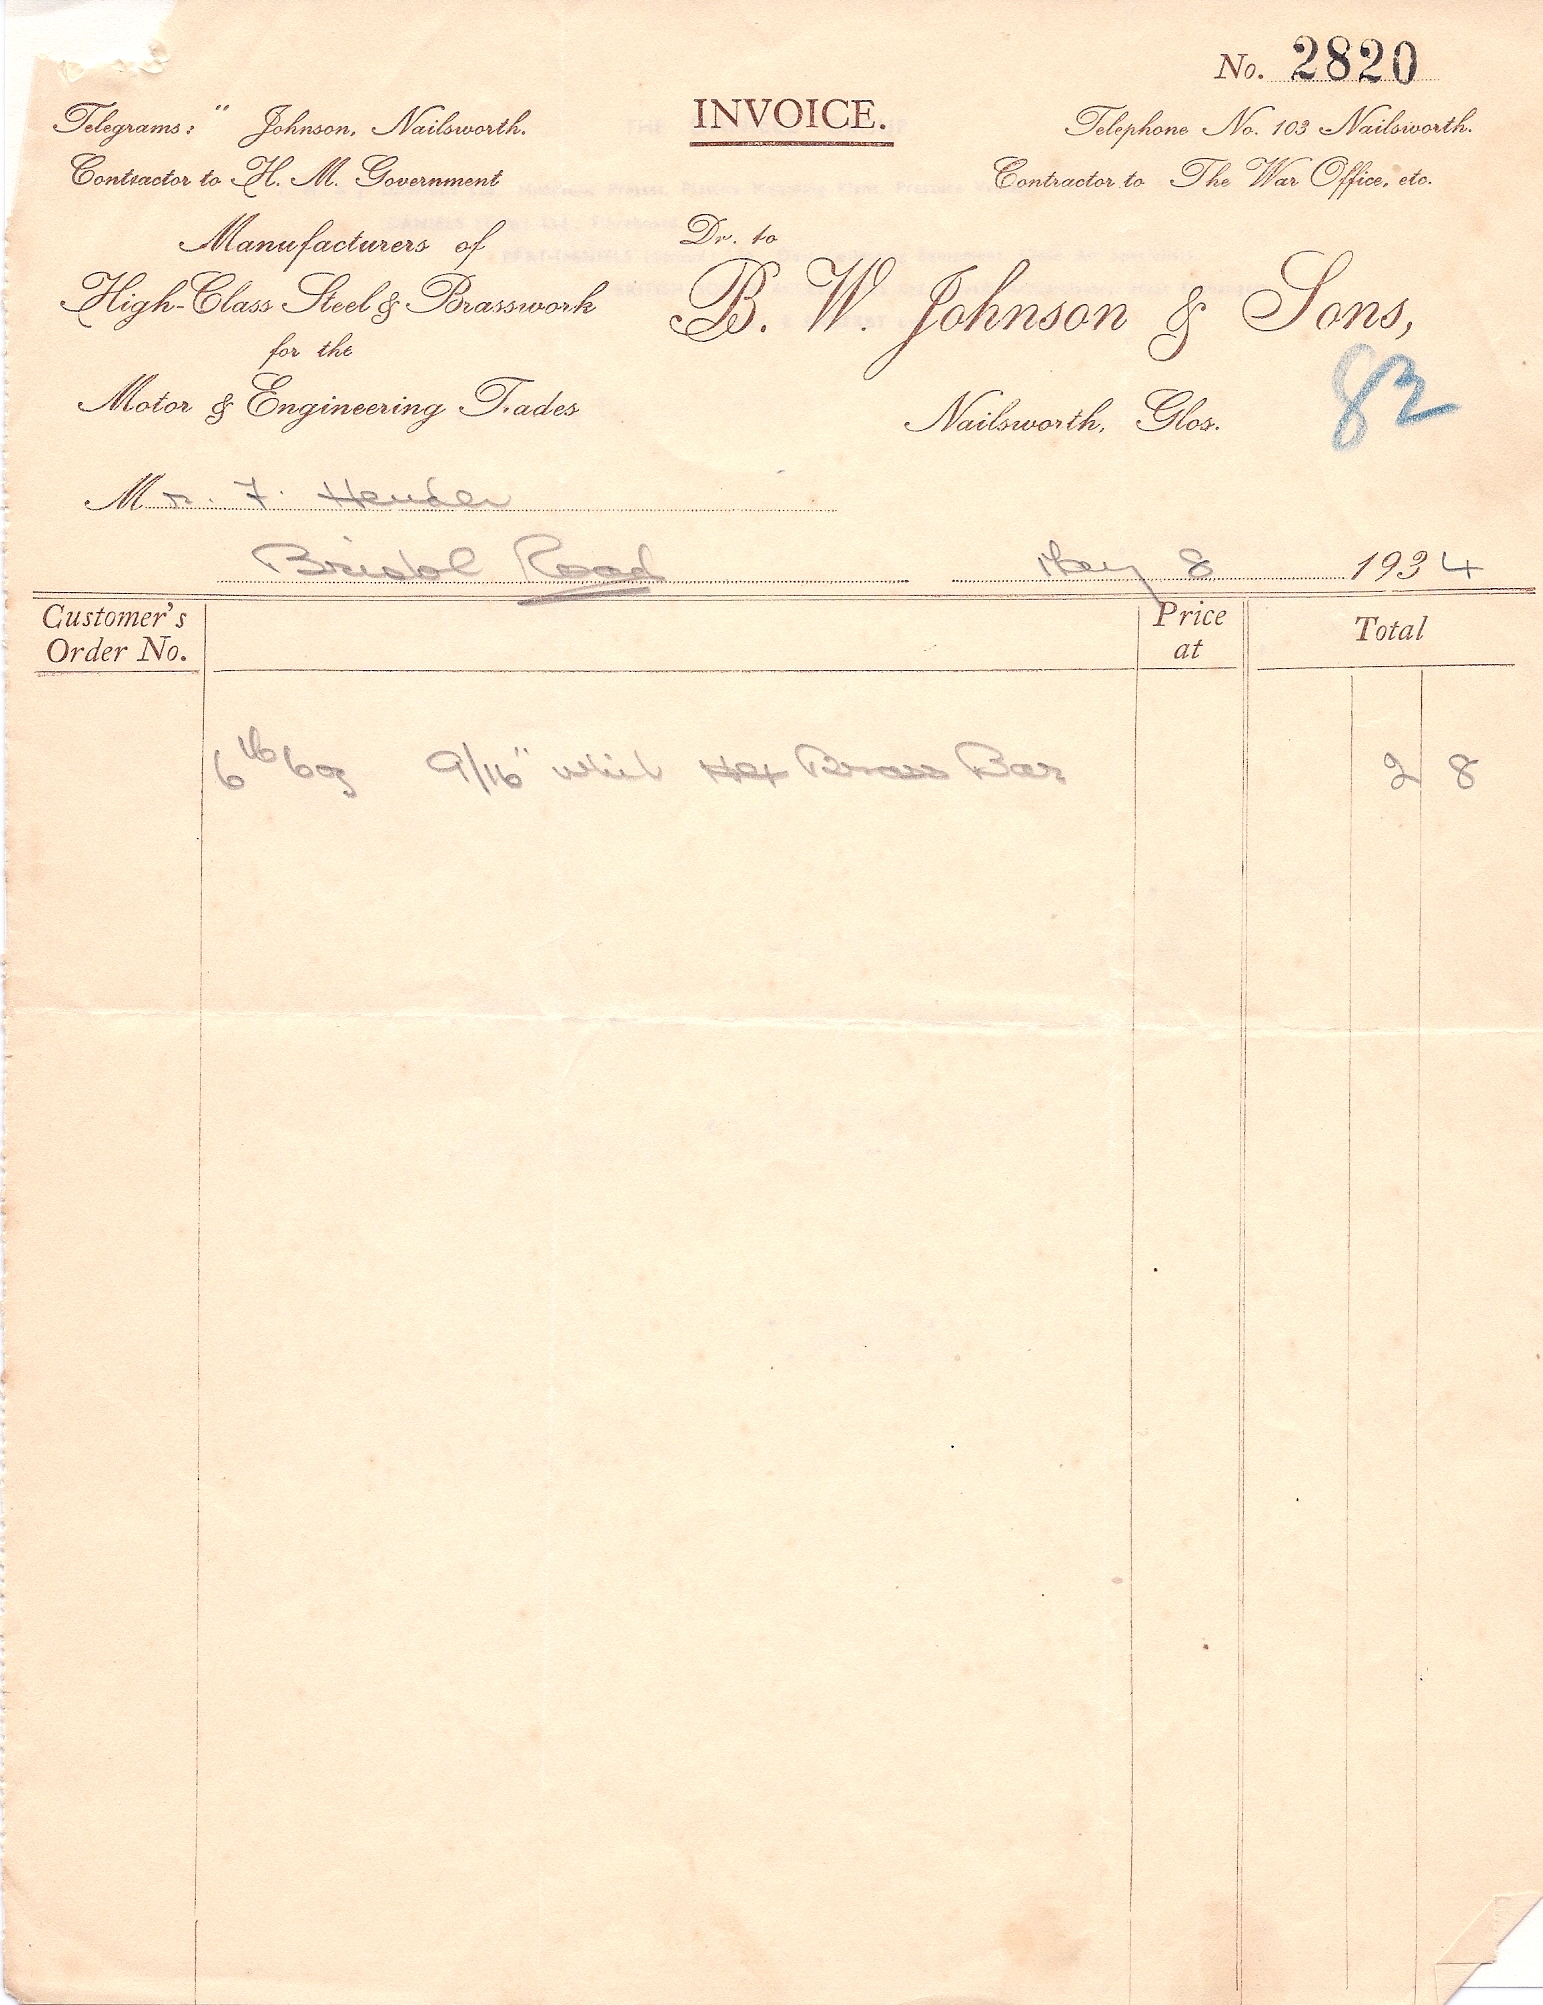 No. 2820
INVOICE.
Telegrams: " Johnson, Nailsworth.
Telephone No. 103 Nailsworth.
Contractor to H. M. Government
Contractor to The War Office, etc.
Manufacturers of
High-Class Steel & Brasswork
for the
Motor & Engineering Trades
Dr. to
B. W. Johnson & Sons,
Nailsworth, Glos.
82
Mr. F. Hender
Bristol Road
May 8 1934
Customer's Order No.
Price at
Total
6 lb 6 oz 9/16" Whit Hex Brass Bar 2 8